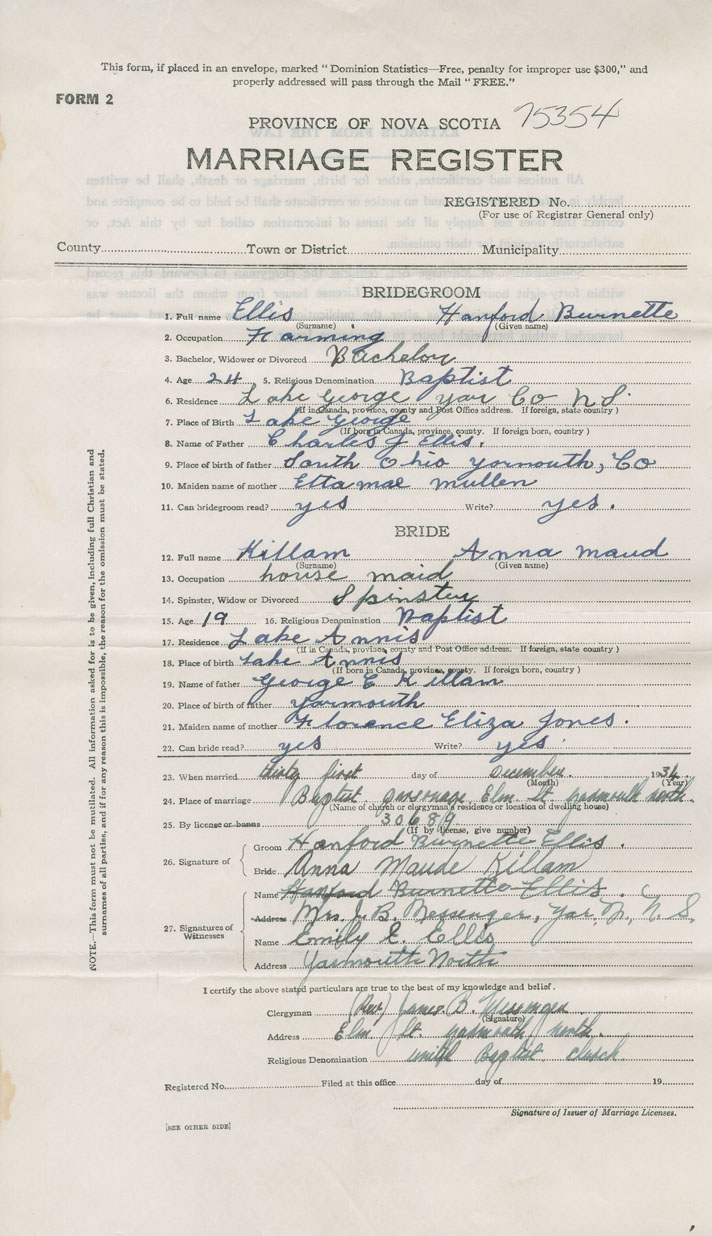 This form, if placed in an envelope, marked " Dominion Statistics—Free, penalty for improper use $300," and
properly addressed will pass through the Mail "FREE."
FORM 2
PROVINCE OF NOVA SCOTIA 75354
MARRIAGE REGISTER
REGISTERED No.
(For use of Registrar General only)
County Town or District Municipality
BRIDEGROOM
1. Full name Ellis Hanford Burnette
(Surname) (Given name)
2. Occupation Farming
3. Bachelor, Widower or Divorced Bachelor
4. Age 24 5. Religious Denomination Baptist
6. Residence Lake George Yar Co N S.
(If in Canada, province, county and Post Office address. If foreign, state country )
7. Place of Birth Lake George
(If born in Canada, province, county. If foreign born, country )
8. Name of Father Charles J Ellis.
9. Place of birth of father South Ohio yarmouth, Co
10. Maiden name of mother Etta mae mullen
11. Can bridegroom read? yes Write? yes.
BRIDE
12. Full name Killam Anna maud
(Surname) (Given name)
13. Occupation house maid
14. Spinster, Widow or Divorced Spinster
15. Age 19 16. Religious Denomination Baptist
17. Residence Lake Annis
(If in Canada, province, county and Post Office address. If foreign, state country )
18. Place of birth Lake Annis
(If born in Canada, province, county. If foreign born, country )
19. Name of father George E Killam
20. Place of birth of father yarmouth
21. Maiden name of mother Florence Eliza Jones.
22. Can bride read? yes Write? yes.
23. When married thirty first day of December. 1934.
(Month) (Year)
24. Place of marriage Baptist parsonage, Elm St. yarmouth north.
(Name of church or clergyman's residence or location of dwelling house)
25. By license or banns 30689
(If by license, give number)
26. Signature of
Groom Hanford Burnette Ellis.
Bride Anna Maude Killam
27. Signatures of Witnesses
Name Hanford Burnette Ellis.
Address Mrs J. B. Messenger, Yar. N., N. S.
Name Emily E. Ellis
Address Yarmouth North
I certify the above stated particulars are true to the best of my knowledge and belief.
Clergyman (Rev) James. B. Messenger
(Signature)
Address Elm St. yarmouth north.
Religious Denomination United Baptist church
Registered No. Filed at this office day of 19
Signature of Issuer of Marriage Licenses.
[SEE OTHER SIDE]
NOTE.—This form must not be mutilated. All information asked for is to be given, including full Christian and
surnames of all parties, and if for any reason this is impossible, the reason for the omission must be stated.